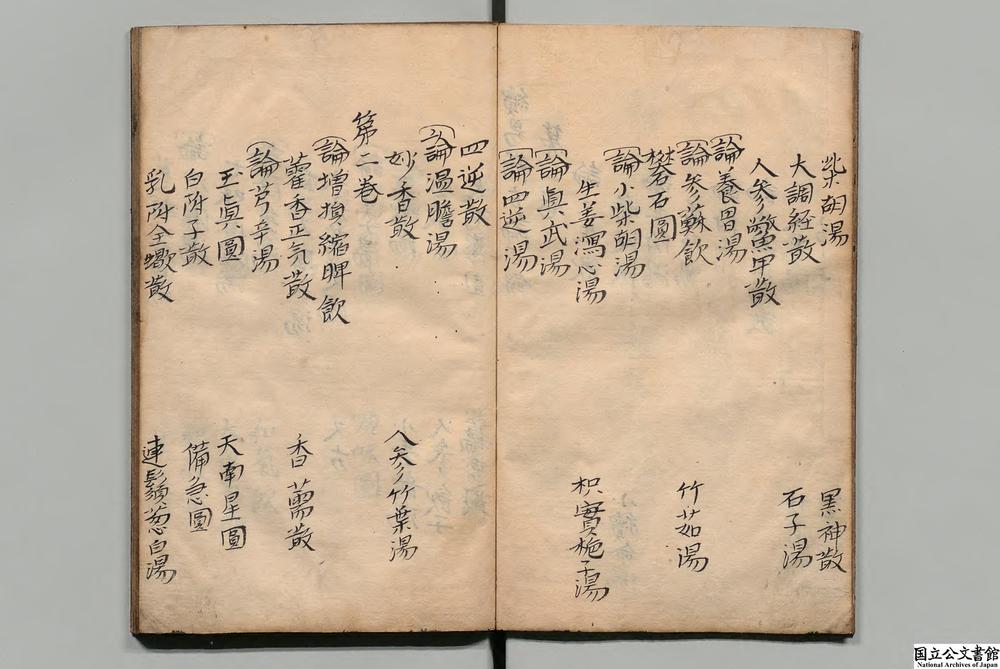 柴胡湯 黒神散
大調経散 石子湯
人参鱉甲散
論養胃湯
論参蘇飲 竹茹湯
礬石圓
論小柴胡湯
生姜瀉心湯 枳實梔子湯
論眞武湯
論四逆湯
四逆散
論温膽湯
妙香散 人参竹葉湯
第二巻
論増損縮脾飲
藿香正気散 香薷散
論芎辛湯
玉眞圓 天南星圓
白附子散 備急圓
乳附全蝎散 連鬚葱白湯
国立公文書館
National Archives of Japan